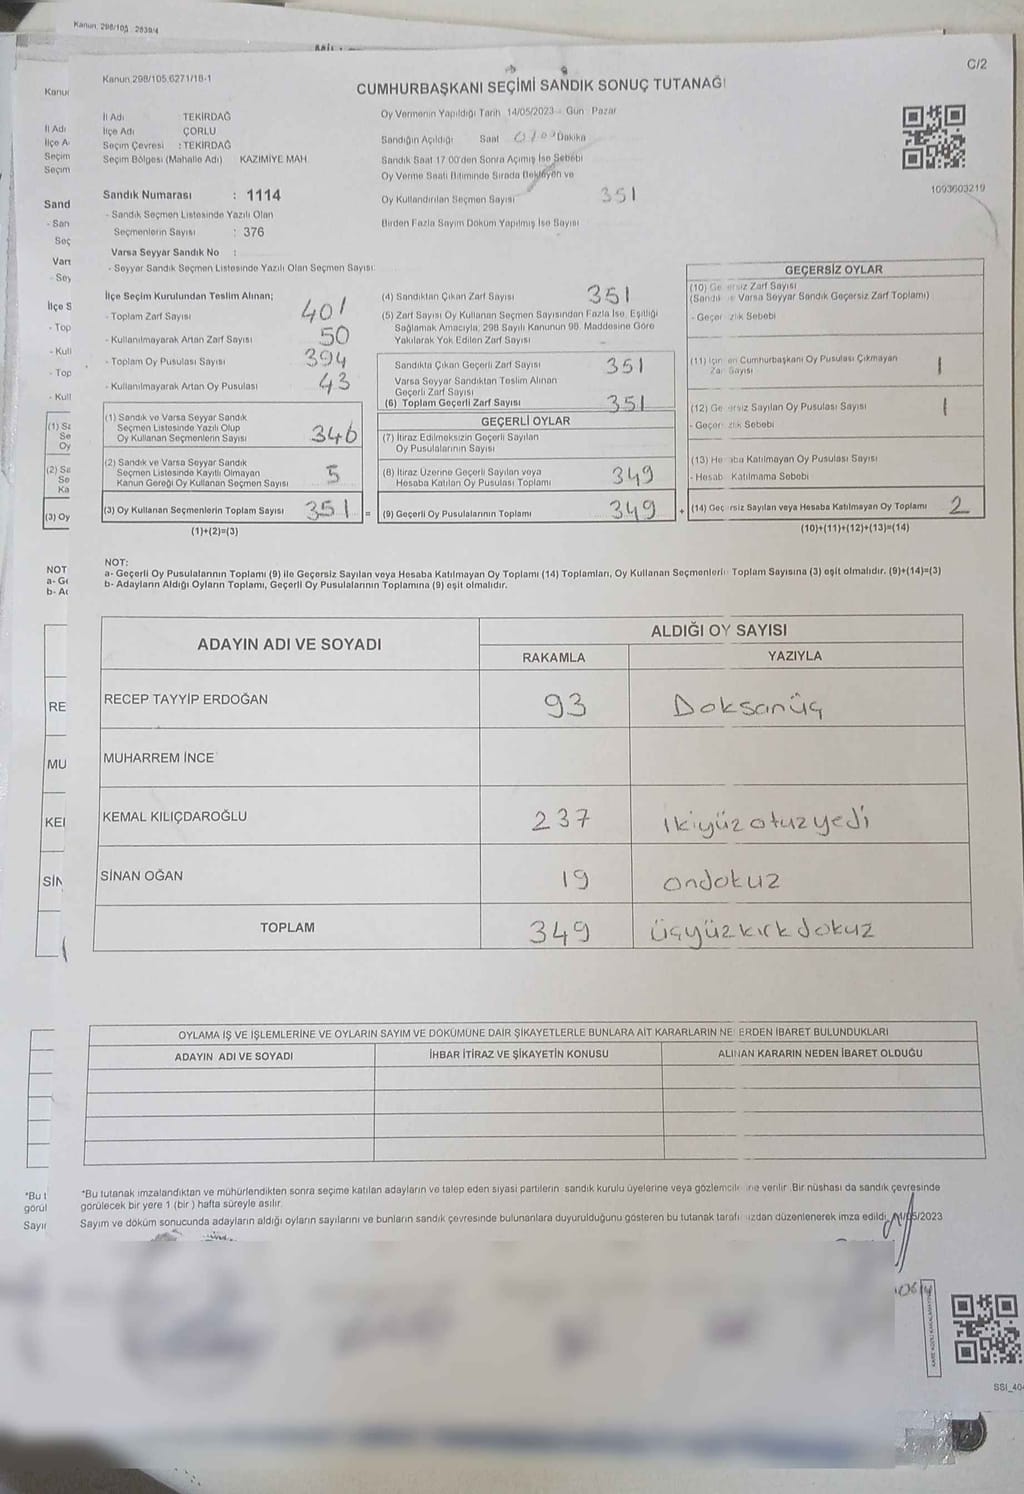 Kanun 298/105 2839/4
C/2
Kanun 298/105,6271/18-1
CUMHURBAŞKANI SEÇİMİ SANDIK SONUÇ TUTANAĞI
İl Adı : TEKİRDAĞ
İlçe Adı ÇORLU
Seçim Çevresi : TEKİRDAĞ
Seçim Bölgesi (Mahalle Adı) KAZIMİYE MAH.
Sandık Numarası : 1114
- Sandık Seçmen Listesinde Yazılı Olan
Seçmenlerin Sayısı : 376
Varsa Seyyar Sandık No :
- Seyyar Sandık Seçmen Listesinde Yazılı Olan Seçmen Sayısı:
Oy Vermenin Yapıldığı Tarih 14/05/2023 - Gün : Pazar
Sandığın Açıldığı Saat Dakika
Sandık Saat 17 00'den Sonra Açılmış İse Sebebi
Oy Verme Saati Bitiminde Sırada Bekleyen ve
Oy Kullandırılan Seçmen Sayısı 351
Birden Fazla Sayım Döküm Yapılmış İse Sayısı
1093603219
İlçe Seçim Kurulundan Teslim Alınan;
- Toplam Zarf Sayısı 401
- Kullanılmayarak Artan Zarf Sayısı 50
- Toplam Oy Pusulası Sayısı 394
- Kullanılmayarak Artan Oy Pusulası 43
(1) Sandık ve Varsa Seyyar Sandık
Seçmen Listesinde Yazılı Olup
Oy Kullanan Seçmenlerin Sayısı 346
(2) Sandık ve Varsa Seyyar Sandık
Seçmen Listesinde Kayıtlı Olmayan
Kanun Gereği Oy Kullanan Seçmen Sayısı 5
(3) Oy Kullanan Seçmenlerin Toplam Sayısı 351 =
(1)+(2)=(3)
(4) Sandıktan Çıkan Zarf Sayısı 351
(5) Zarf Sayısı Oy Kullanan Seçmen Sayısından Fazla İse, Eşitliği
Sağlamak Amacıyla, 298 Sayılı Kanunun 98. Maddesine Göre
Yakılarak Yok Edilen Zarf Sayısı
Sandıkta Çıkan Geçerli Zarf Sayısı 351
Varsa Seyyar Sandıktan Teslim Alınan
Geçerli Zarf Sayısı
(6) Toplam Geçerli Zarf Sayısı 351
GEÇERLİ OYLAR
(7) İtiraz Edilmeksizin Geçerli Sayılan
Oy Pusulalarının Sayısı
(8) İtiraz Üzerine Geçerli Sayılan veya
Hesaba Katılan Oy Pusulası Toplamı 349
(9) Geçerli Oy Pusulalarının Toplamı 349 +
GEÇERSİZ OYLAR
(10) Ge ersiz Zarf Sayısı
(Sandık e Varsa Seyyar Sandık Geçersiz Zarf Toplamı)
- Geçer zlik Sebebi
(11) İçin en Cumhurbaşkanı Oy Pusulası Çıkmayan
Zar Sayısı 1
(12) Ge ersiz Sayılan Oy Pusulası Sayısı 1
- Geçer zlik Sebebi
(13) He aba Katılmayan Oy Pusulası Sayısı
- Hesab Katılmama Sebebi
(14) Geç rsiz Sayılan veya Hesaba Katılmayan Oy Toplamı 2
(10)+(11)+(12)+(13)=(14)
NOT:
a- Geçerli Oy Pusulalarının Toplamı (9) ile Geçersiz Sayılan veya Hesaba Katılmayan Oy Toplamı (14) Toplamları, Oy Kullanan Seçmenlerin Toplam Sayısına (3) eşit olmalıdır. (9)+(14)=(3)
b- Adayların Aldığı Oyların Toplamı, Geçerli Oy Pusulalarının Toplamına (9) eşit olmalıdır.
ADAYIN ADI VE SOYADI ALDIĞI OY SAYISI
RAKAMLA YAZIYLA
RECEP TAYYİP ERDOĞAN 93 Doksanüç
MUHARREM İNCE
KEMAL KILIÇDAROĞLU 237 ikiyüzotuzyedi
SİNAN OĞAN 19 ondokuz
TOPLAM 349 üçyüzkırkdokuz
OYLAMA İŞ VE İŞLEMLERİNE VE OYLARIN SAYIM VE DÖKÜMÜNE DAİR ŞİKAYETLERLE BUNLARA AİT KARARLARIN NE ERDEN İBARET BULUNDUKLARI
ADAYIN ADI VE SOYADI İHBAR İTİRAZ VE ŞİKAYETİN KONUSU ALINAN KARARIN NEDEN İBARET OLDUĞU
*Bu tutanak imzalandıktan ve mühürlendikten sonra seçime katılan adayların ve talep eden siyasi partilerin sandık kurulu üyelerine veya gözlemcile ine verilir. Bir nüshası da sandık çevresinde
görülecek bir yere 1 (bir ) hafta süreyle asılır.
Sayım ve döküm sonucunda adayların aldığı oyların sayılarını ve bunların sandık çevresinde bulunanlara duyurulduğunu gösteren bu tutanak tarafı ızdan düzenlenerek imza edildi. /05/2023
SSI_40